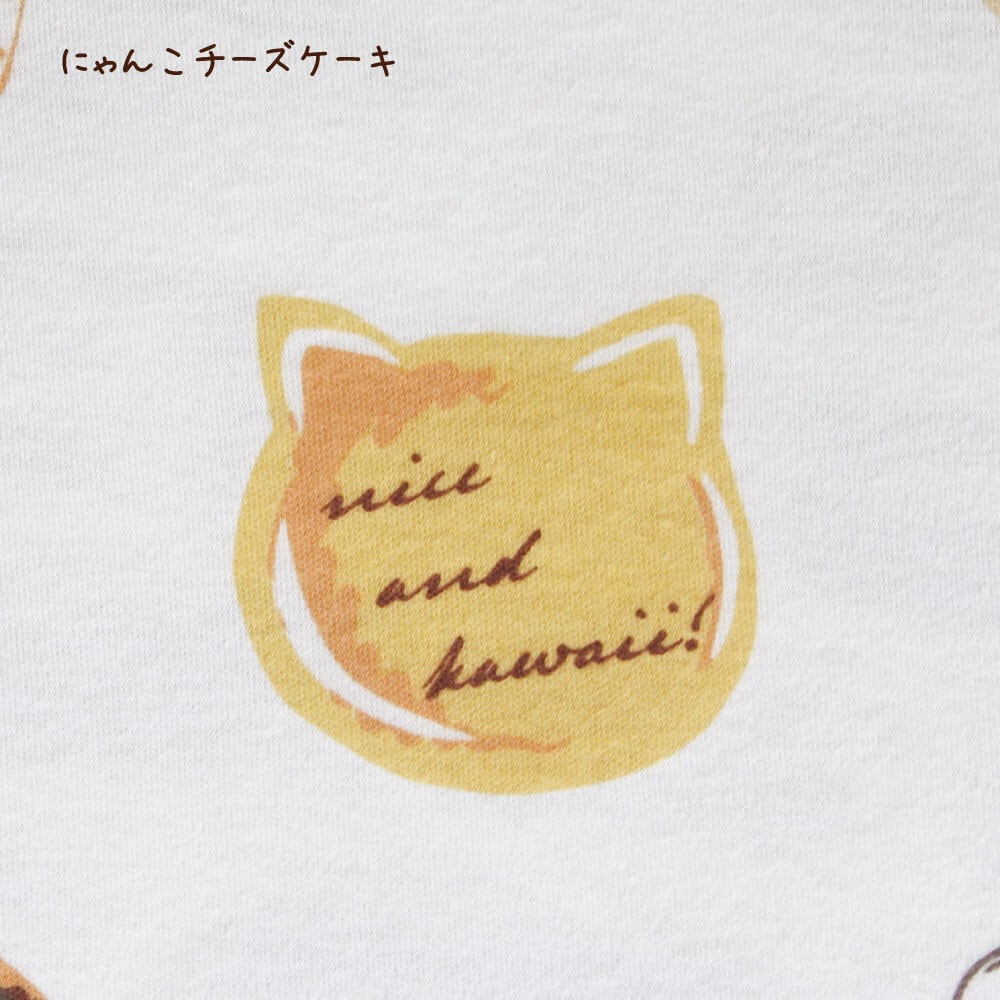 にゃんこチーズケーキ
nice
and
kawaii!